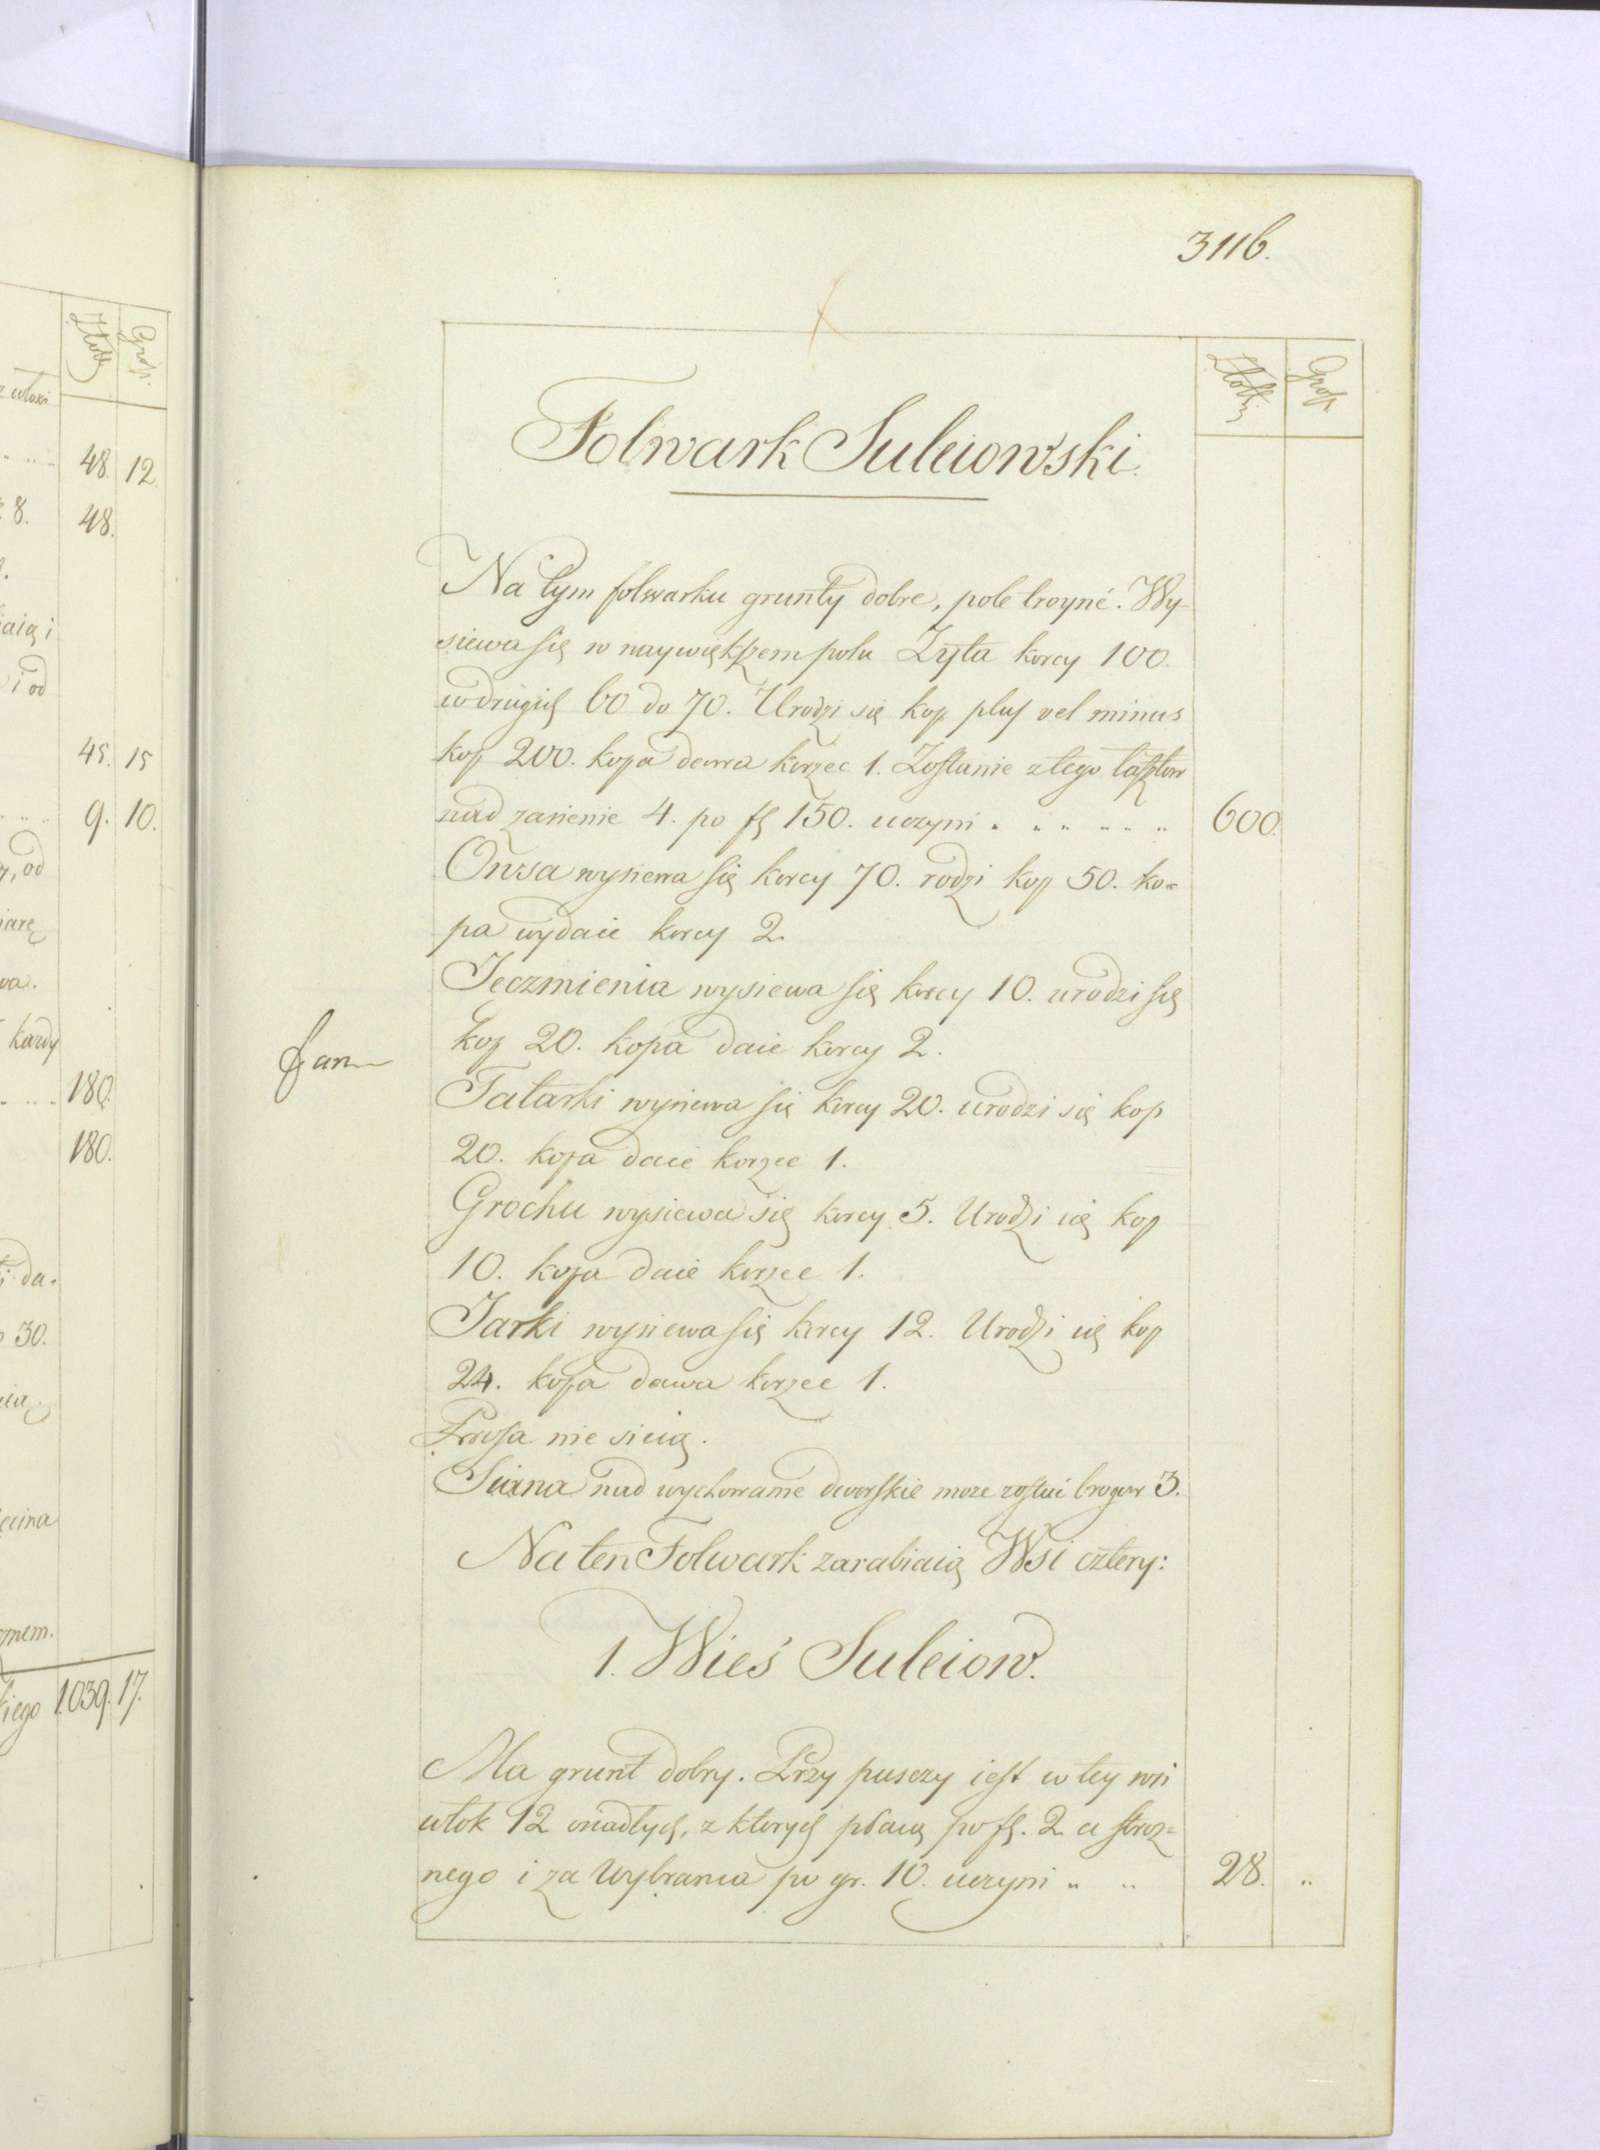 3116.
Złotki
Grosz
Folwark Suleiowski.
Na tym folwarku grunty dobre, pole troyné. Wy-
siewa się w naywiększem polu Żyta korcy 100.
w drugich 60 do 70. Urodzi się kop plus vel minus
kop 200. kopa dawa korzec 1. Zostanie z tego łasztow
nad zasienie 4. po fl 150. uczyni " " " " " "
600.
Owsa wysiewa się korcy 70. rodzi kop 50. ko=
pa wydaie korcy 2.
Jeczmienia wysiewa się korcy 10. urodzi się
kop 20. kopa daie korcy 2.
Tatarki wysiewa się korcy 20. urodzi się kop
20. kopa daie korzec 1.
Grochu wysiewa się korcy 5. Urodzi się kop
10. kopa daie korzec 1.
Jarki wysiewa się korcy 12. Urodzi się kop
24. kopa dawa korzec 1.
Prosa nie sieią.
Siana nad wychowanie dworskie moze zostać brogow 3.
Na ten Folwark zarabiaią Wsi cztery:
1. Wieś Suleiow.
Ma grunt dobry. Przy puszczy iest w tey wsi
włok 12 osiadłych, z ktorych płacą po fl. 2 a stroz=
nego i za Wybrania po gr. 10. uczyni " "
28. "
z włoki
48. 12.
8.
48.
i od
45. 15
9. 10.
od
180.
180.
da.
30.
1039. 17.